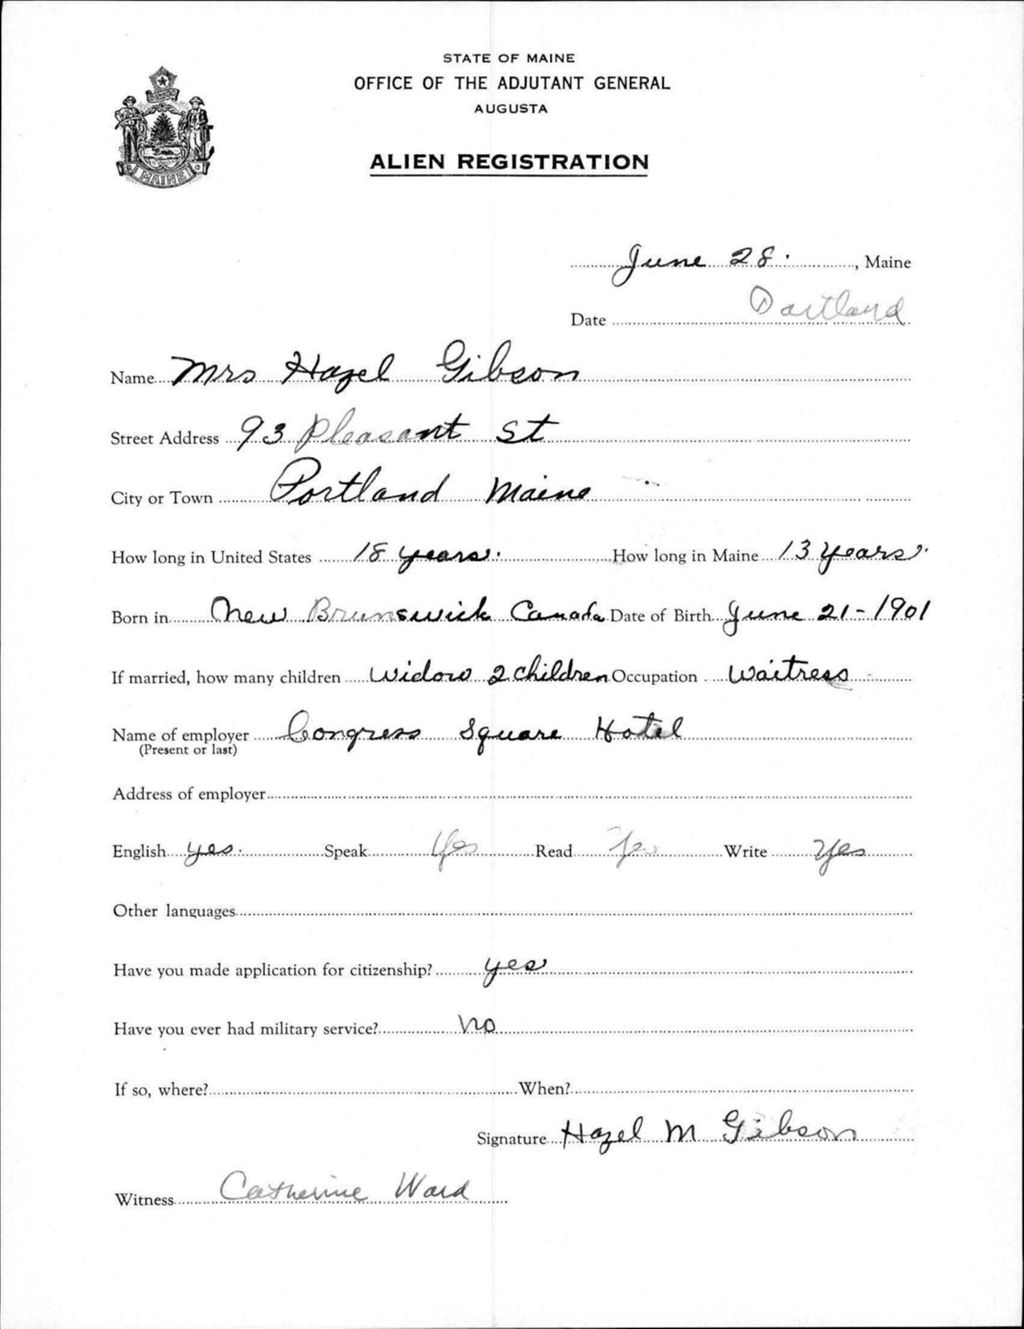 STATE OF MAINE
OFFICE OF THE ADJUTANT GENERAL
AUGUSTA
ALIEN REGISTRATION
MAINE
June 28. , Maine
Date Portland
Name Mrs Hazel Gibson
Street Address 93 Pleasant St
City or Town Portland Maine
How long in United States 18 years. How long in Maine 13 years.
Born in New Brunswick Canada Date of Birth June 21-1901
If married, how many children Widow 2 children Occupation Waitress
Name of employer Congress Square Hotel
(Present or last)
Address of employer
English yes. Speak Yes Read Yes Write Yes
Other languages
Have you made application for citizenship? yes
Have you ever had military service? no
If so, where? When?
Signature Hazel M Gibson
Witness Catherine Ward